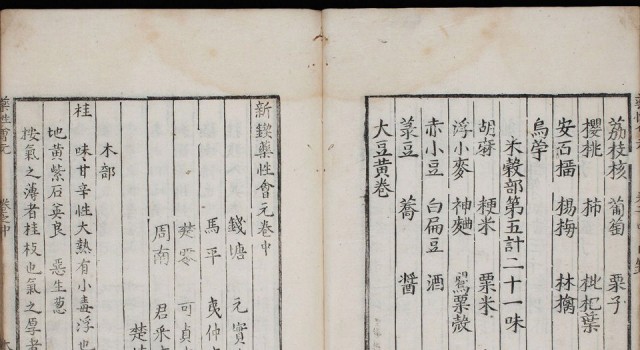 荔枝核 葡萄 栗子
櫻桃 柿 枇杷葉
安石榴 楊梅 林檎
烏芋
米穀部第五計二十一味
胡麻 粳米 粟米
浮小麥 神麯 罌粟殼
赤小豆 白扁豆 酒
菉豆 蕎 醬
大豆黃卷
新鍥藥性會元卷中
錢塘 元實
馬平 夷仲
楚零 可貞
周南 君采
楚
木部
桂 味甘辛性大熱有小毒浮也
地黃紫石英良 惡生葱
按氣之薄者桂枝也氣之厚者
藥性會元 卷之中